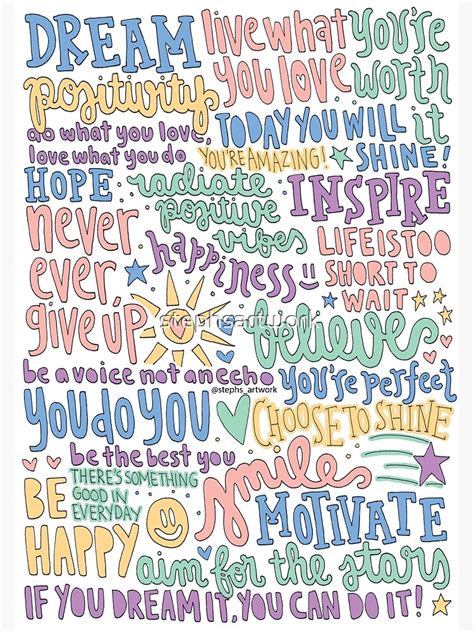 DREAM
live what
you love
you're
worth
it
positivity
do what you love,
love what you do
TODAY YOU WILL
SHINE!
YOU'RE AMAZING!
HOPE
radiate
positive
vibes
INSPIRE
never
ever
give up
happiness
LIFE IS TOO
SHORT TO
WAIT
stephsartwork
believe
be a voice not an echo
@stephs_artwork
you're perfect
YOU DO YOU
CHOOSE TO SHINE
be the best you
smile
BE
HAPPY
THERE'S SOMETHING
GOOD IN
EVERYDAY
MOTIVATE
aim for the stars
IF YOU DREAM IT, YOU CAN DO IT!